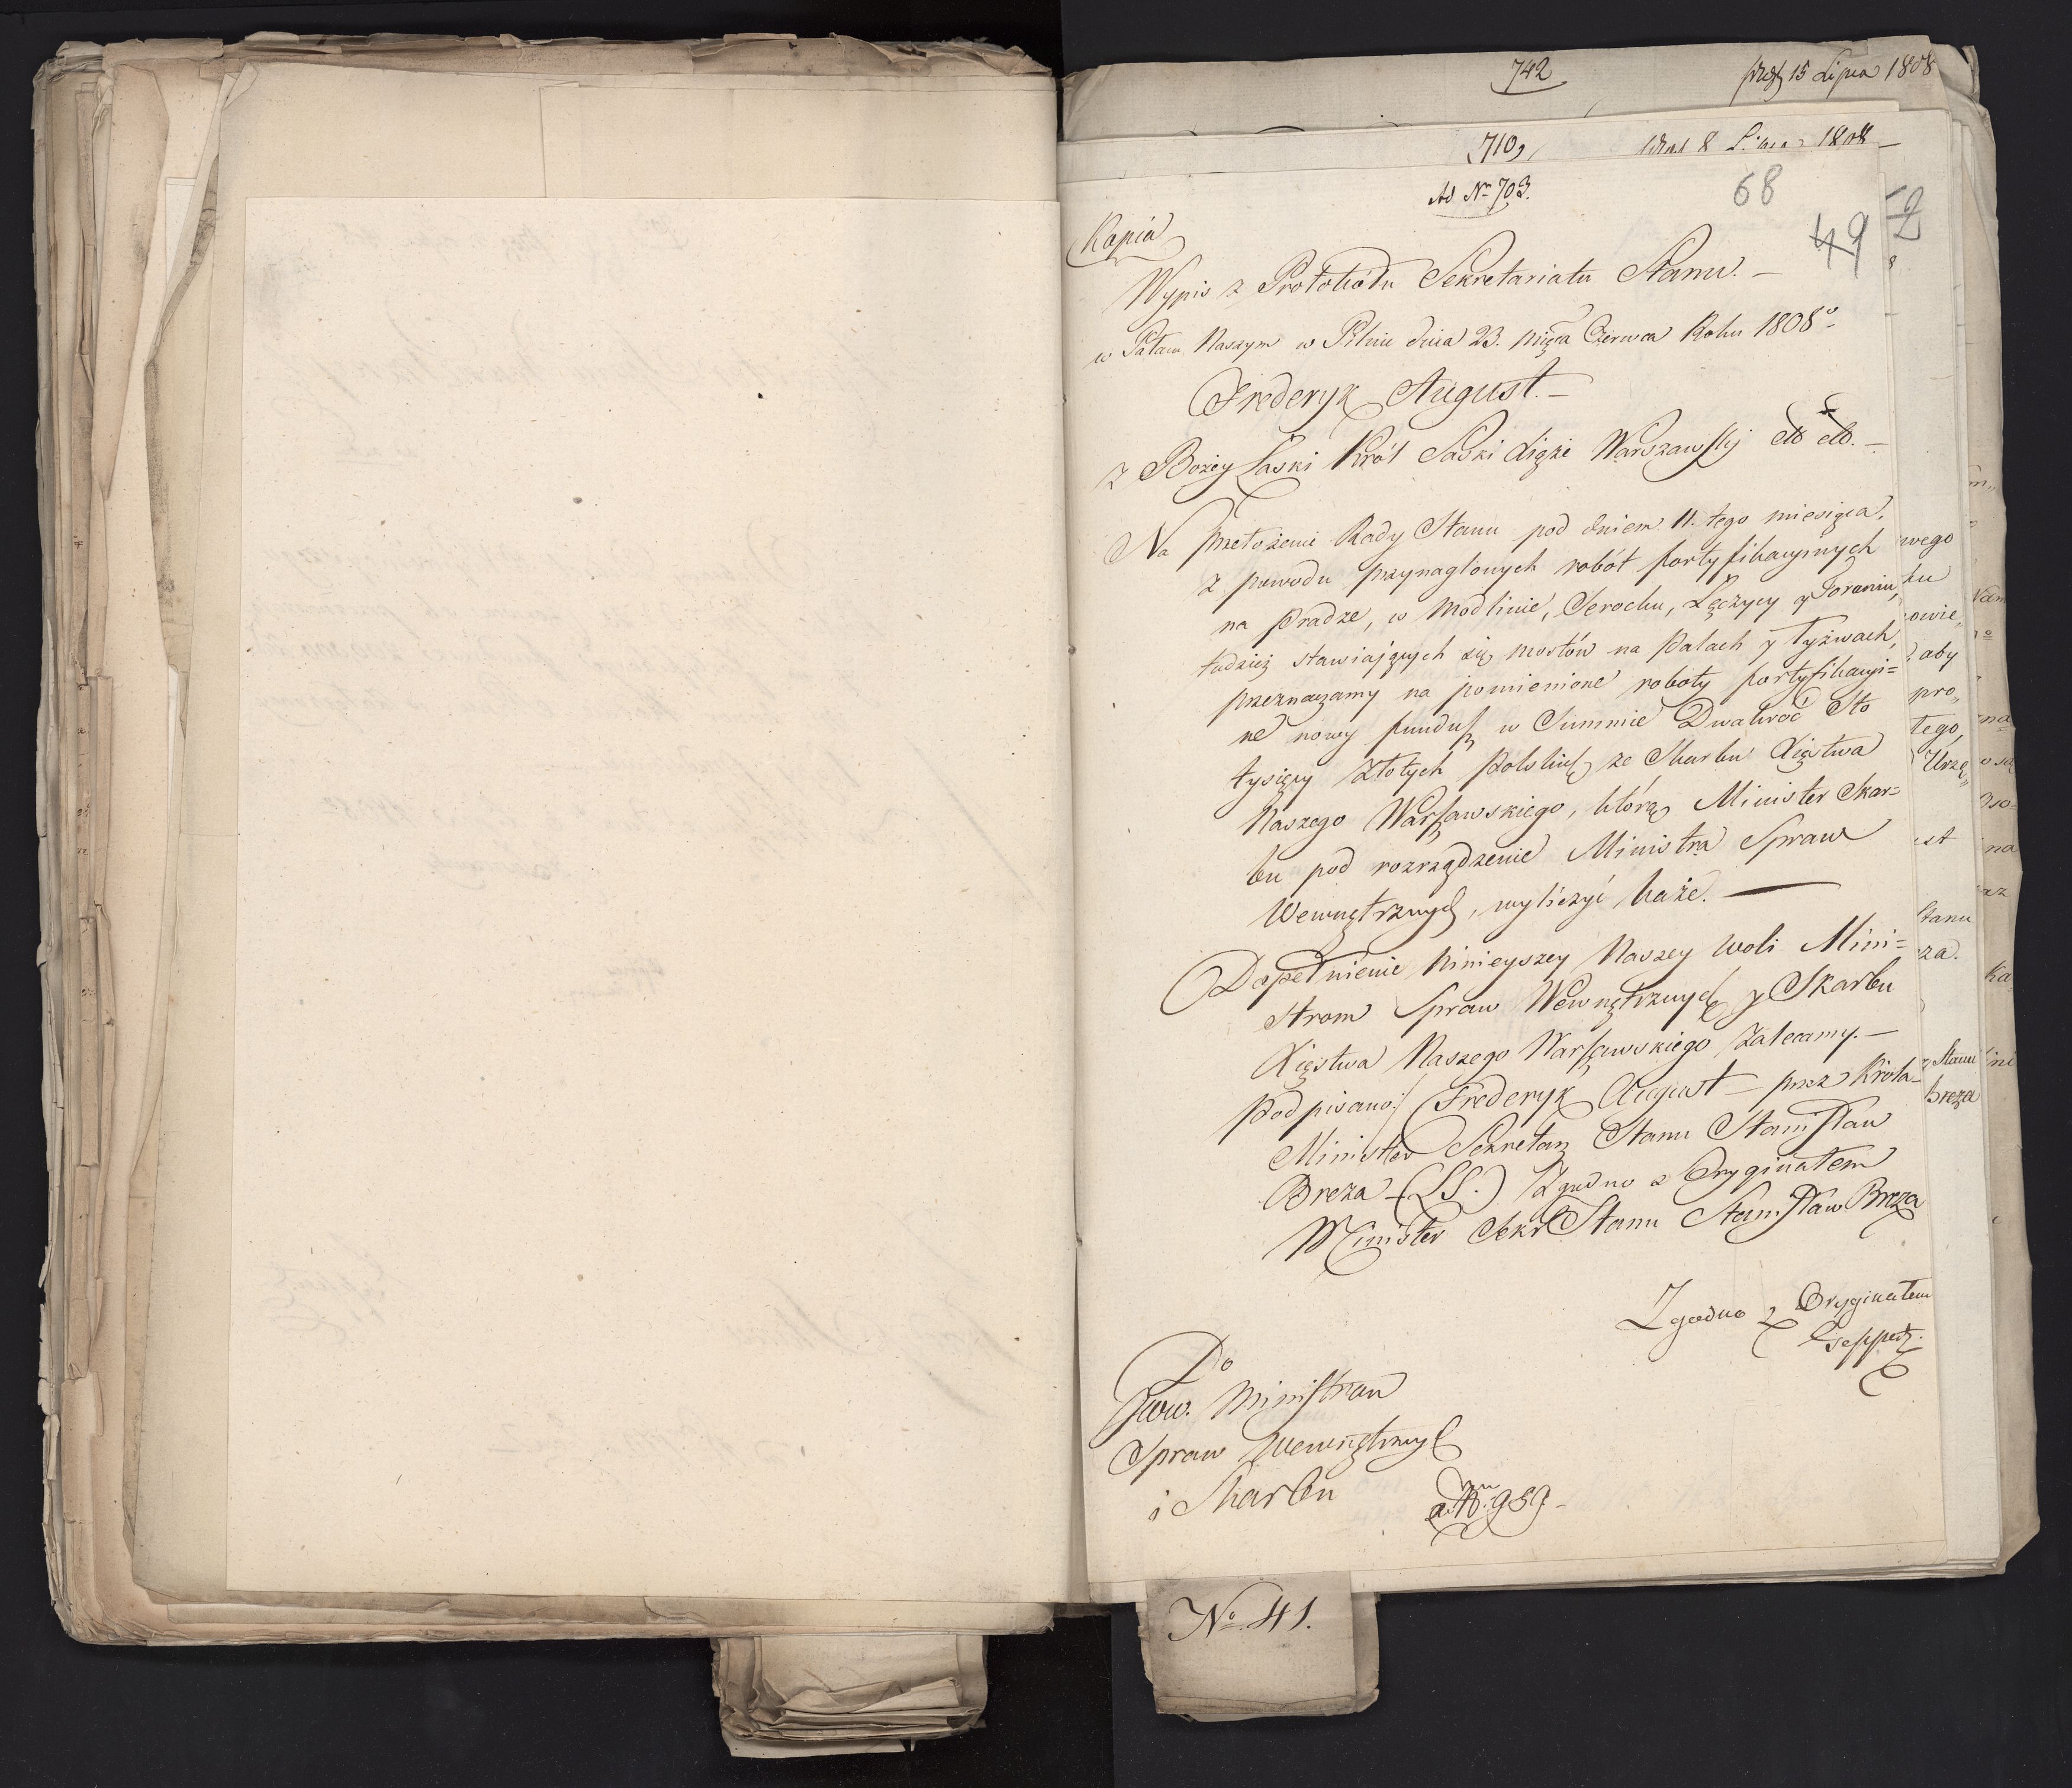 742
15 Lipca 1808
710
8 1808
Ad Nr 703.
68
49
Kopia
Wypis z Protokółu Sekretariatu Stanu.
w Pałacu Naszym w Pilnic dnia 23. mięca Czerwca Roku 1808o
Frederyk August.
z Bożey Łaski Król Saski Xiąże Warszawski etc etc.
Na przełożenie Rady Stanu pod dniem 11. tego miesiąca,
z powodu przynaglonych robót fortyfikacyinych
na Pradze, w Modlinie, Serocku, Łęczycy y Toruniu,
tudzież stawiaiących się mostów na Palach y łyżwach,
przeznaczamy na pomienione roboty fortyfikacyi=
ne nowy fundusz w Summie Dwakroć Sto
tysięcy Złotych Polskich ze Skarbu Xięstwa
Naszego Warszawskiego, którą Minister Skar=
bu pod rozrządzenie Ministra Spraw
Wewnętrznych, wyliczyć każe.
Dopełnienie ninieyszey Naszey woli Mini=
strom Spraw Wewnętrznych y Skarbu
Xięstwa Naszego Warszawskiego zalecamy.
Podpisano/ Frederyk August – przez Króla
Minister Sekretarz Stanu Stanisław
Breza (LS.) Zgodno z Oryginałem
Minister Sekr Stanu Stanisław Breza
Zgodno z Oryginałem
Do
JWW. Ministrów
Spraw Wewnętrznych
i Skarbu
959
No 41.
wego
ku
owie„
aby
pro„
tego,
Urzę„
st
Stanu
za.
Stanu
Breza